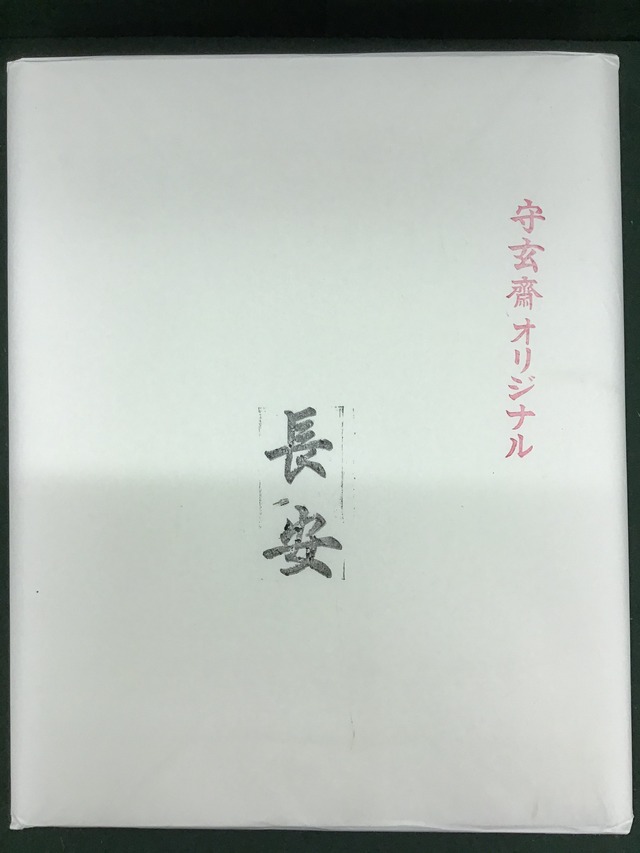 守玄齋オリジナル
長安